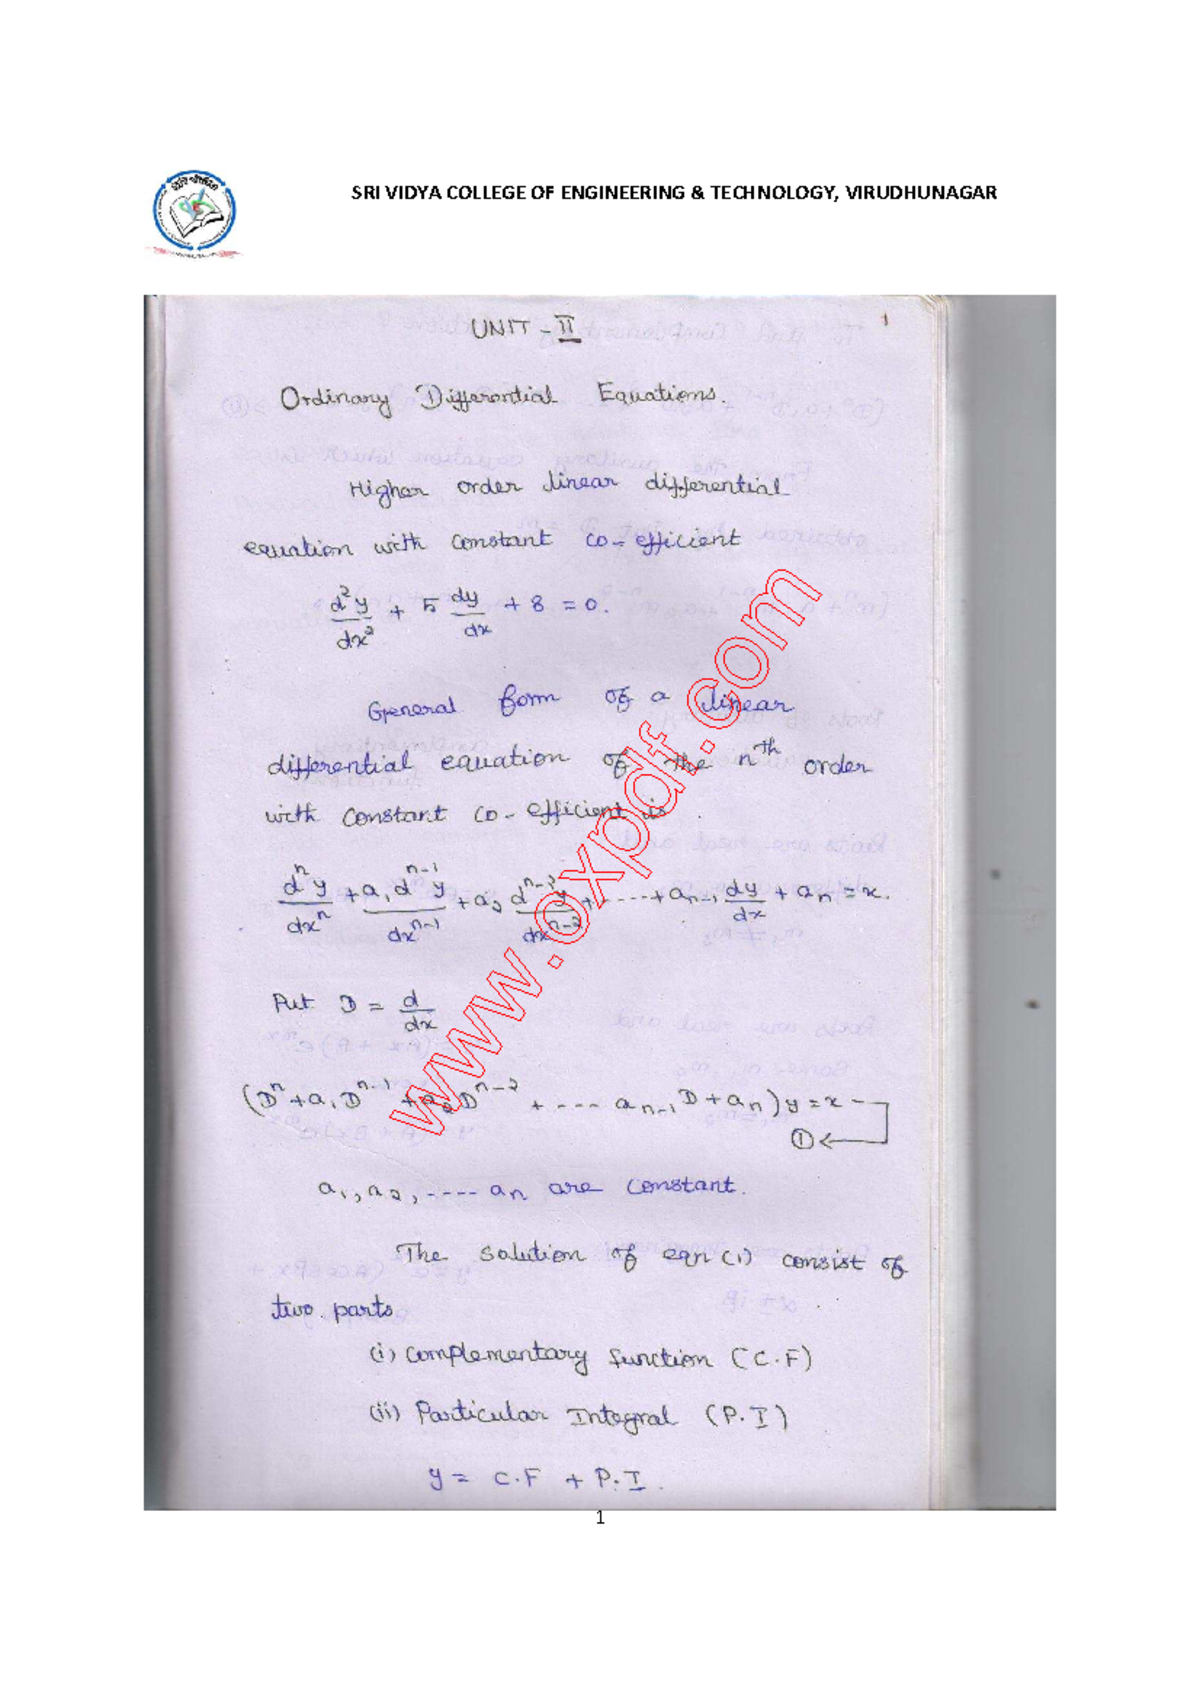 SRI VIDYA COLLEGE OF ENGINEERING & TECHNOLOGY, VIRUDHUNAGAR
UNIT - II
1
Ordinary Differential Equations.
Higher order linear differential
equation with constant co-efficient
d²y/dx² + 5 dy/dx + 8 = 0.
General form of a linear
differential equation of the nᵗʰ order
with constant co-efficient is
dⁿy/dxⁿ + a₁ dⁿ⁻¹y/dxⁿ⁻¹ + a₂ dⁿ⁻²y/dxⁿ⁻² + ----- + aₙ₋₁ dy/dx + aₙ = x.
Put D = d/dx
(Dⁿ + a₁Dⁿ⁻¹ + a₂Dⁿ⁻² + ---- aₙ₋₁D + aₙ)y = x —
①←
a₁, a₂, ----- aₙ are constant.
The solution of eqn (1) consist of
two parts
(i) Complementary function (C.F)
(ii) Particular Integral (P.I)
y = C.F + P.I.
www.oxpdf.com
1